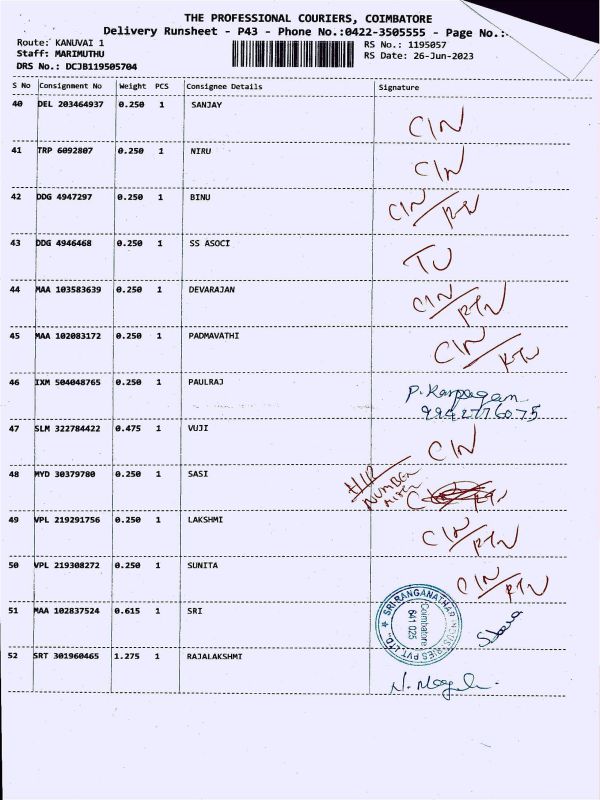 THE PROFESSIONAL COURIERS, COIMBATORE
Delivery Runsheet - P43 - Phone No.:0422-3505555 - Page No.:
Route: KANUVAI 1
RS No.: 1195057
Staff: MARIMUTHU
RS Date: 26-Jun-2023
DRS No.: DCJB119505704
S No Consignment No Weight PCS Consignee Details Signature
40 DEL 203464937 0.250 1 SANJAY CIN
41 TRP 6092807 0.250 1 NIRU CIN
42 DDG 4947297 0.250 1 BINU CIN/RTN
43 DDG 4946468 0.250 1 SS ASOCI TU
44 MAA 103583639 0.250 1 DEVARAJAN CIN/RTN
45 MAA 102083172 0.250 1 PADMAVATHI CIN/RTN
46 IXM 504048765 0.250 1 PAULRAJ P. Karpagam
9942776075
47 SLM 322784422 0.475 1 VUJI CIN
48 MYD 30379780 0.250 1 SASI NUMBER
49 VPL 219291756 0.250 1 LAKSHMI CIN/RTN
50 VPL 219308272 0.250 1 SUNITA CIN/RTN
51 MAA 102837524 0.615 1 SRI
SRI RANGANATHAR INDUSTRIES PVT LTD.
Coimbatore
641 025
52 SRT 301960465 1.275 1 RAJALAKSHMI